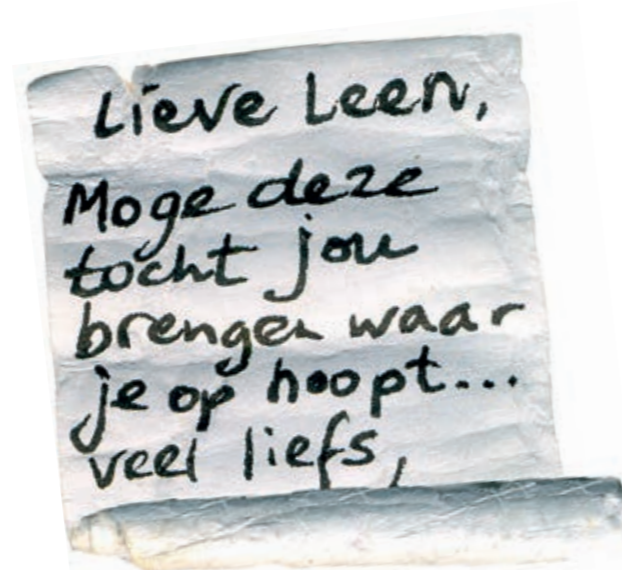 Lieve Leen,
Moge deze
tocht jou
brengen waar
je op hoopt...
veel liefs,